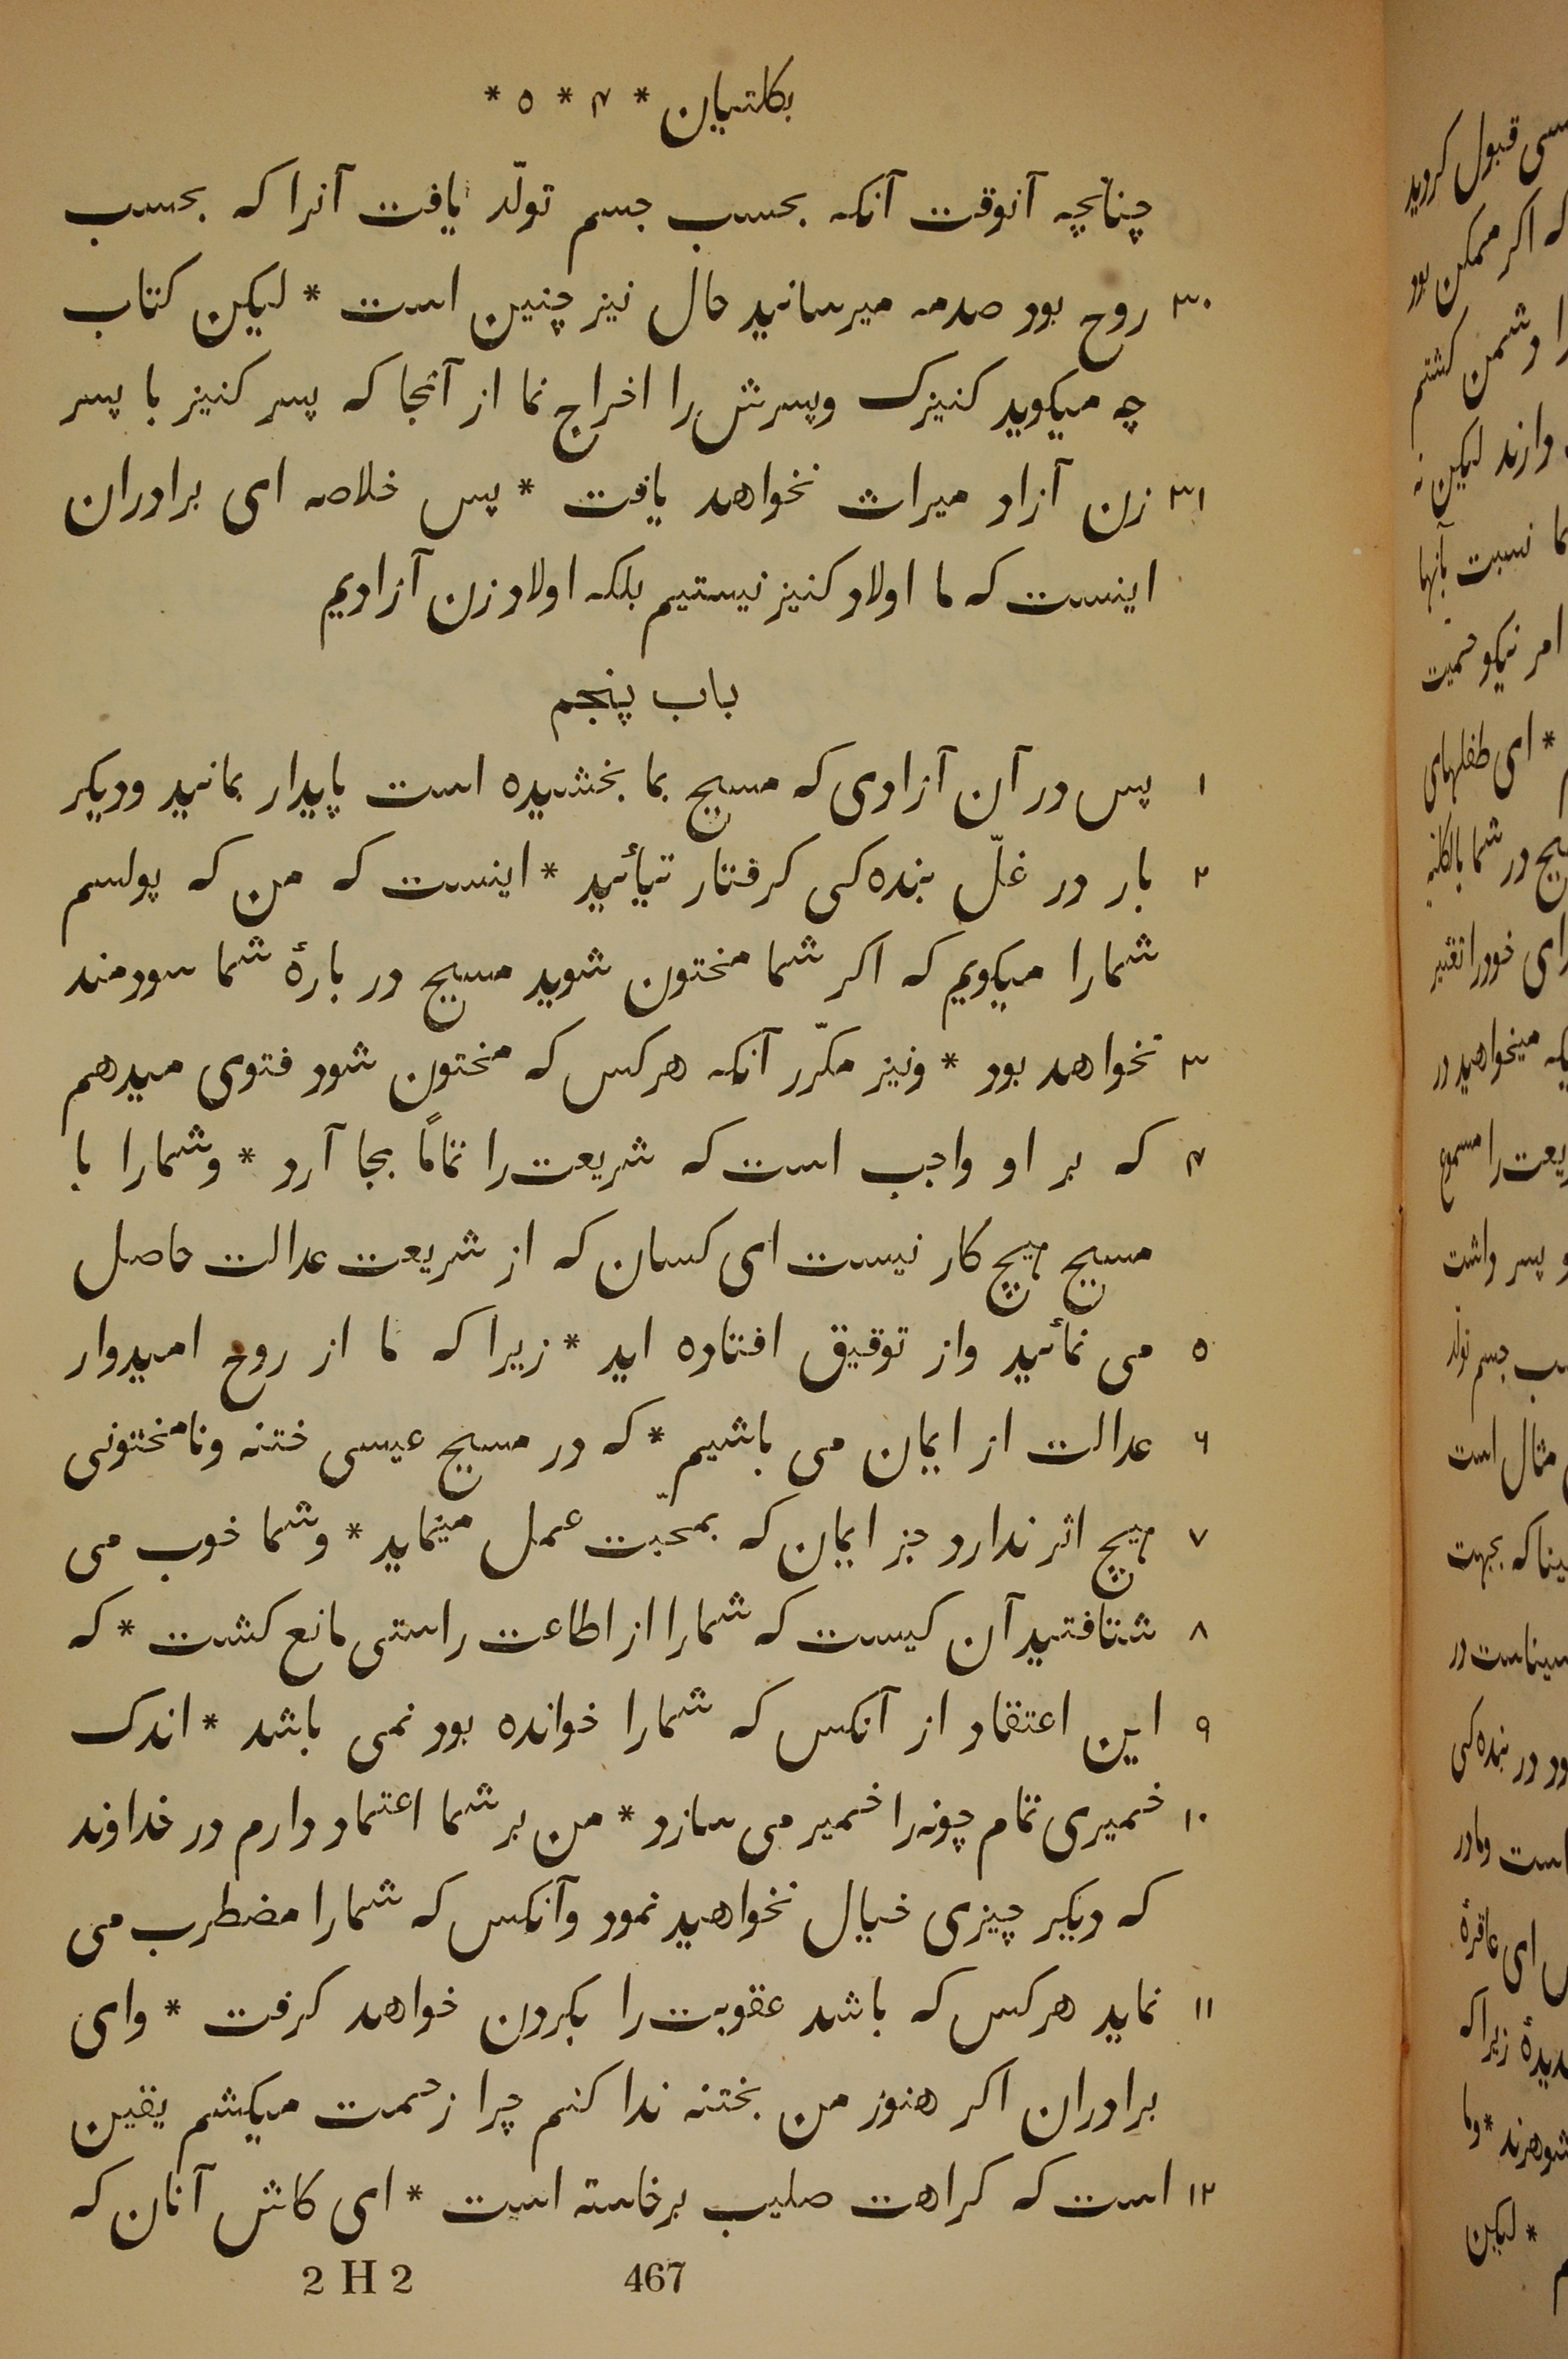 بکلتیان * ۴ * ۵ *
چنانچه آنوقت آنکه بحسب جسم تولّد یافت آنرا که بحسب
۳۰ روح بود صدمه میرسانید حال نیز چنین است * لیکن کتاب
چه میکوید کنیزک وپسرش را اخراج نما از آنجا که پسر کنیز با پسر
۳۱ زن آزاد میراث نخواهد یافت * پس خلاصه ای برادران
اینست که ما اولاد کنیز نیستیم بلکه اولاد زن آزادیم
باب پنجم
۱ پس در آن آزادی که مسیح بما بخشیده است پایدار بمانید ودیکر
۲ بار در غلّ بنده کی کرفتار نیائید * اینست که من که پولسم
شمارا میکویم که اکر شما مختون شوید مسیح در بارهٔ شما سودمند
۳ نخواهد بود * ونیز مکرّر آنکه هرکس که مختون شود فتوی میدهم
۴ که بر او واجب است که شریعت را تمامًا بجا آرد * وشمارا با
مسیح هیچ کار نیست ای کسان که از شریعت عدالت حاصل
۵ می نمائید واز توفیق افتاده اید * زیرا که ما از روح امیدوار
۶ عدالت از ایمان می باشیم * که در مسیح عیسی ختنه ونامختونی
۷ هیچ اثر ندارد جز ایمان که بمحبّت عمل مینماید * وشما خوب می
۸ شتافتید آن کیست که شمارا از اطاعت راستی مانع کشت * که
۹ این اعتقاد از آنکس که شمارا خوانده بود نمی باشد * اندک
۱۰ خمیری تمام چونه را خمیر می سازد * من بر شما اعتماد دارم در خداوند
که دیکر چیزی خیال نخواهید نمود وآنکس که شمارا مضطرب می
۱۱ نماید هرکس که باشد عقوبت را بکردن خواهد کرفت * وای
برادران اکر هنوز من بختنه ندا کنم چرا زحمت میکشم یقین
۱۲ است که کراهت صلیب برخاسته است * ای کاش آنان که
467 2 H 2
سی قبول کردید
که اکر ممکن بود
را دشمن کشتم
دارند لیکن نه
ما نسبت بآنها
امر نیکو حمیت
* ای طفلهای
مسیح در شما بالکلیه
رای خودرا تغییر
میخواهید در
ریعت را مسموع
و پسر داشت
سب جسم تولّد
مثال است
سینا که بجهت
سیناست در
ود در بنده کی
است ومادر
ای عاقرهٔ
زیرا که
شوهرند * وما
* لیکن